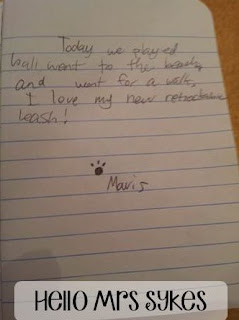 Today we played
ball went to the beach,
and went for a walk,
I love my new retractable
leash!
Mavis
Hello Mrs Sykes